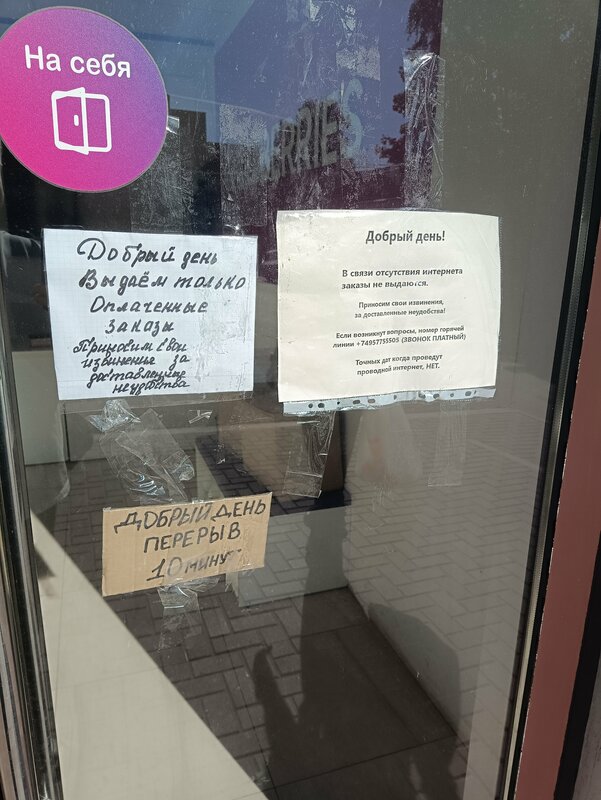 На себя
BERRIES
Добрый день
Выдаём только
Оплаченные
заказы
Приносим свои
извинения за
доставленные
неудобства
Добрый день!
В связи отсутствия интернета
заказы не выдаются.
Приносим свои извинения,
за доставленные неудобства!
Если возникнут вопросы, номер горячей
линии +74957755505 (ЗВОНОК ПЛАТНЫЙ)
Точных дат когда проведут
проводной интернет, НЕТ.
ДОБРЫЙ ДЕНЬ
ПЕРЕРЫВ
10 минут